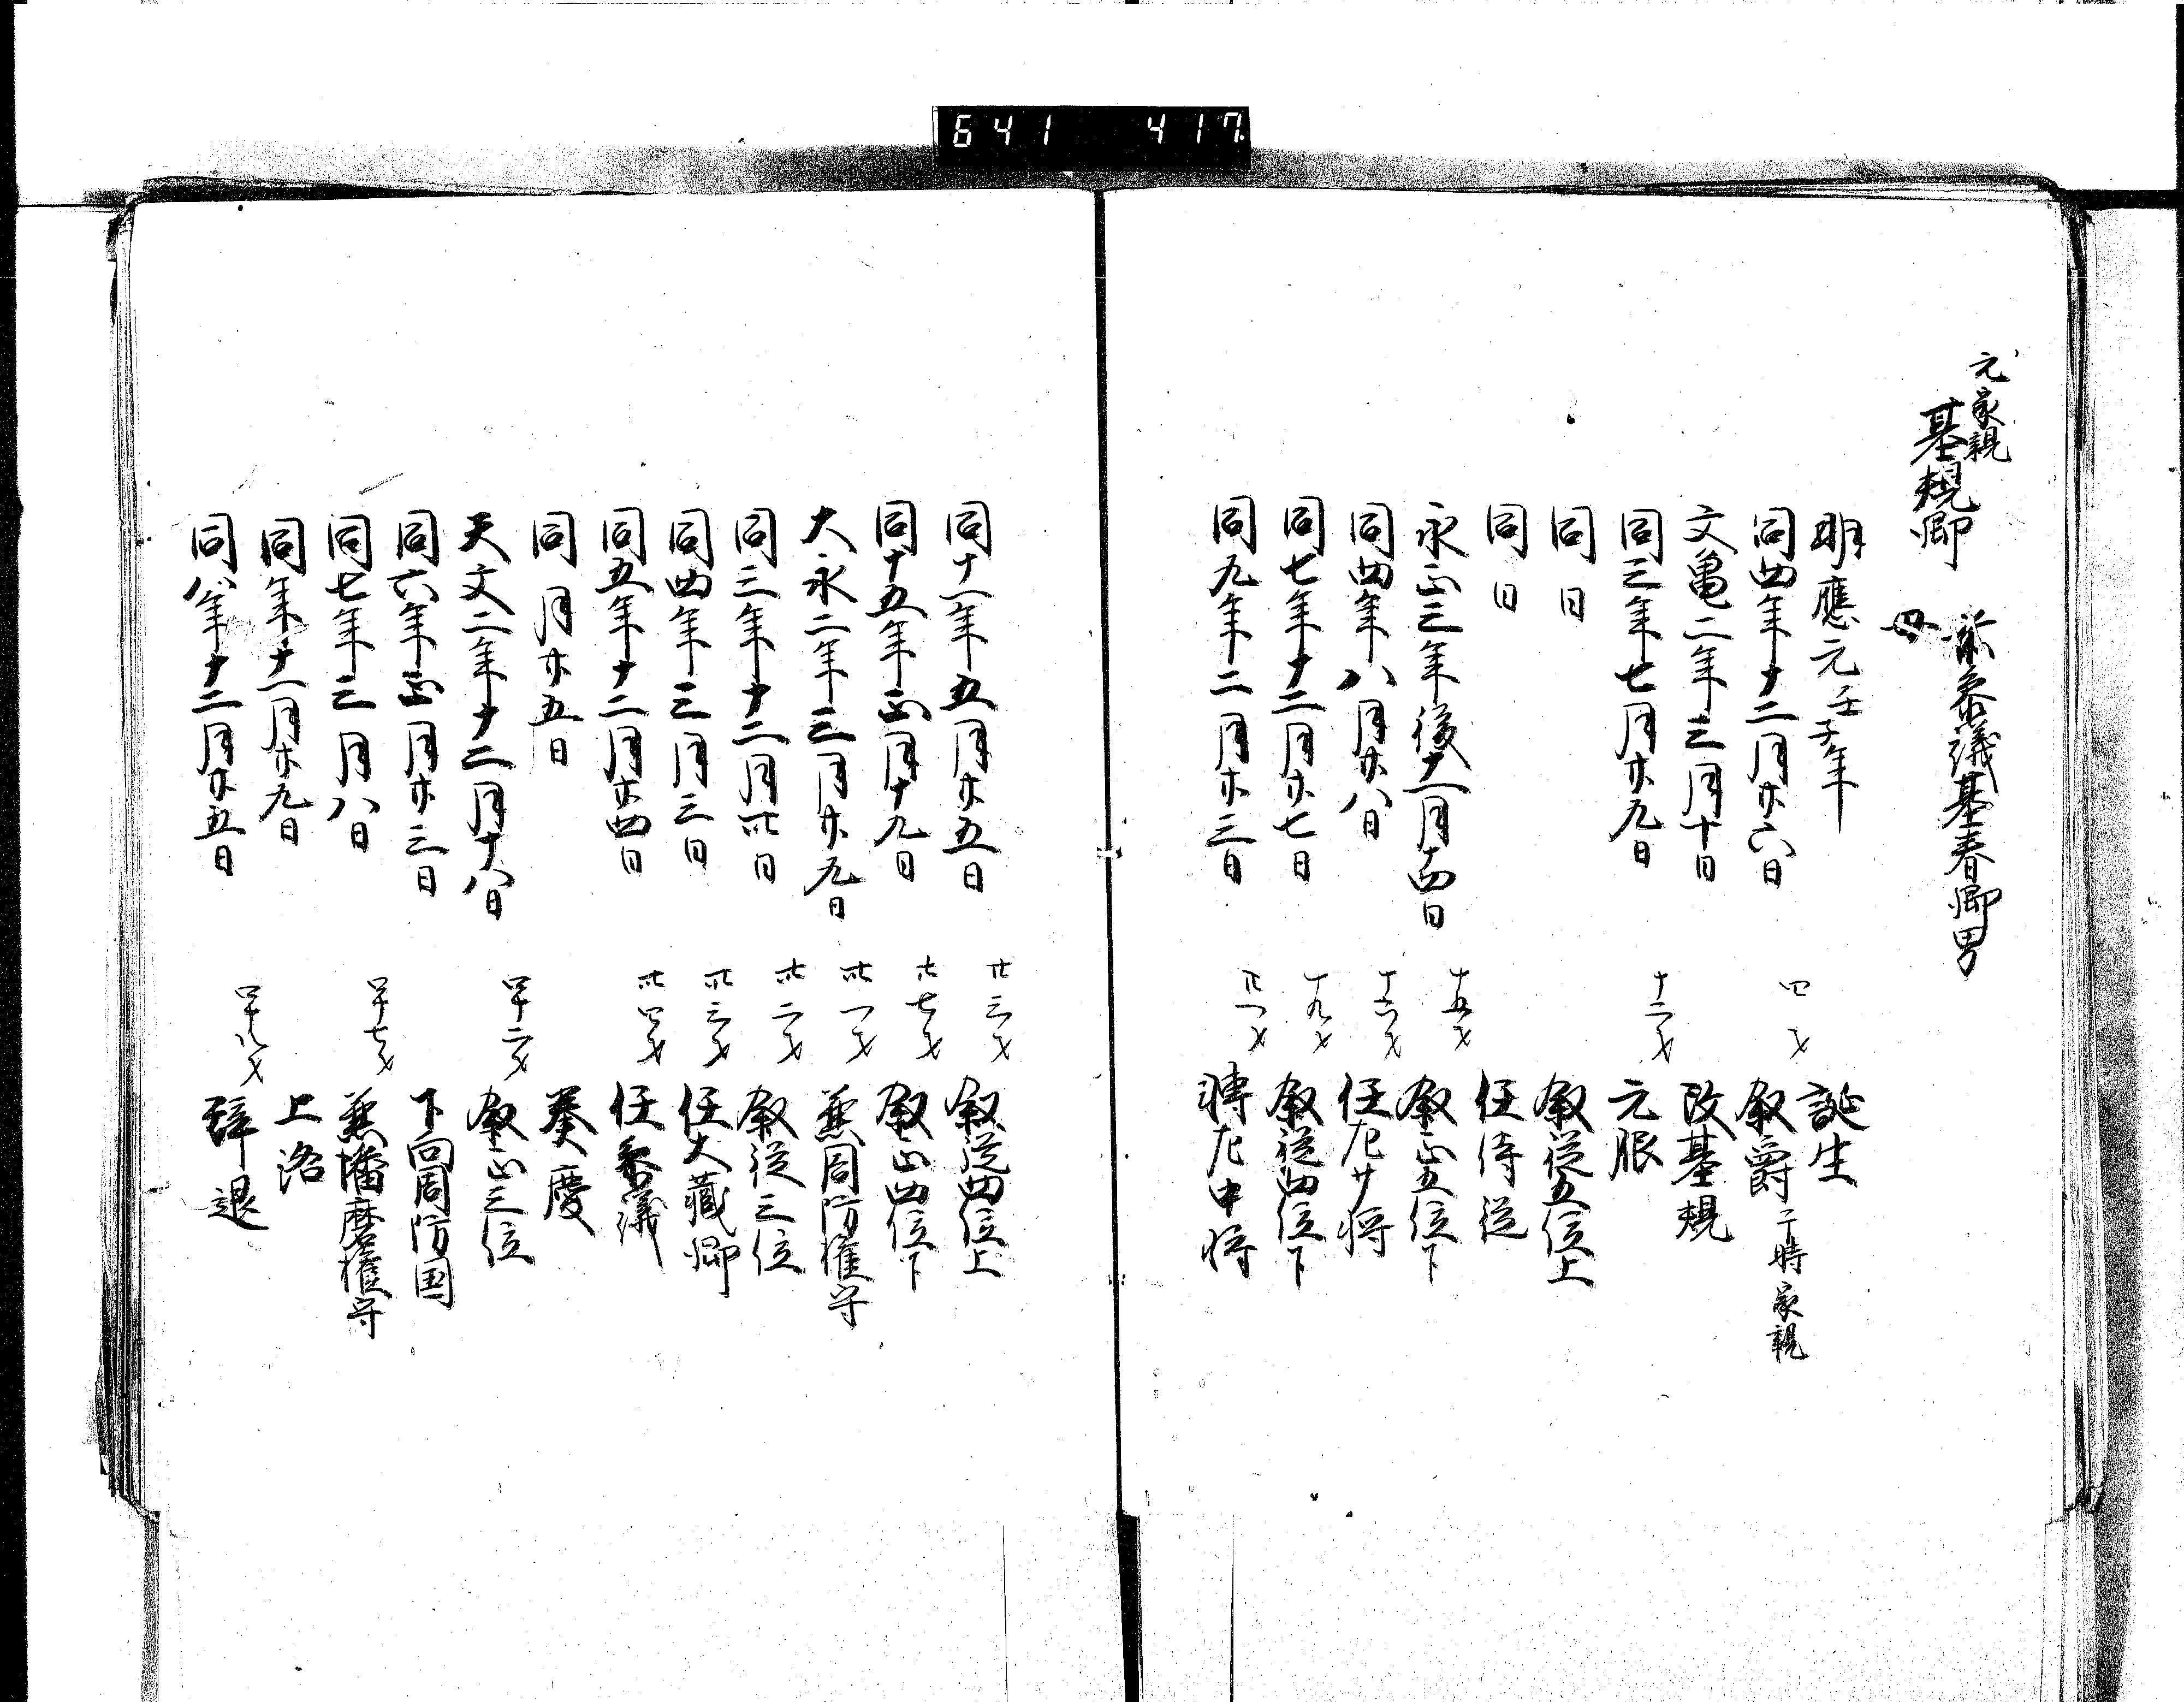 641 417
元家親
基規卿
故参議基春卿男
母
明應元壬子年 誕生
同四年十二月廿六日 四才 叙爵 于時家親
文亀二年三月十日 改基規
同三年七月廿九日 十二才 元服
同日 叙従五位上
同日 任侍従
永正三年後十一月十四日 十五才 叙正五位下
同四年八月廿八日 十六才 任左少将
同七年十二月廿七日 十九才 叙従四位下
同九年二月廿三日 廿一才 転左中将
同十一年五月廿五日 廿三才 叙従四位上
同十五年正月十九日 廿七才 叙正四位下
大永二年三月廿九日 卅一才 兼周防権守
同三年十二月卅日 卅二才 叙従三位
同四年三月三日 卅三才 任大蔵卿
同五年十二月廿四日 卅四才 任参議
同月廿五日 奏慶
天文二年十二月十八日 四十二才 叙正三位
同六年正月廿三日 下向周防国
同七年三月八日 四十七才 兼播磨権守
同年十一月廿九日 上洛
同八年十二月廿五日 四十八才 辞退